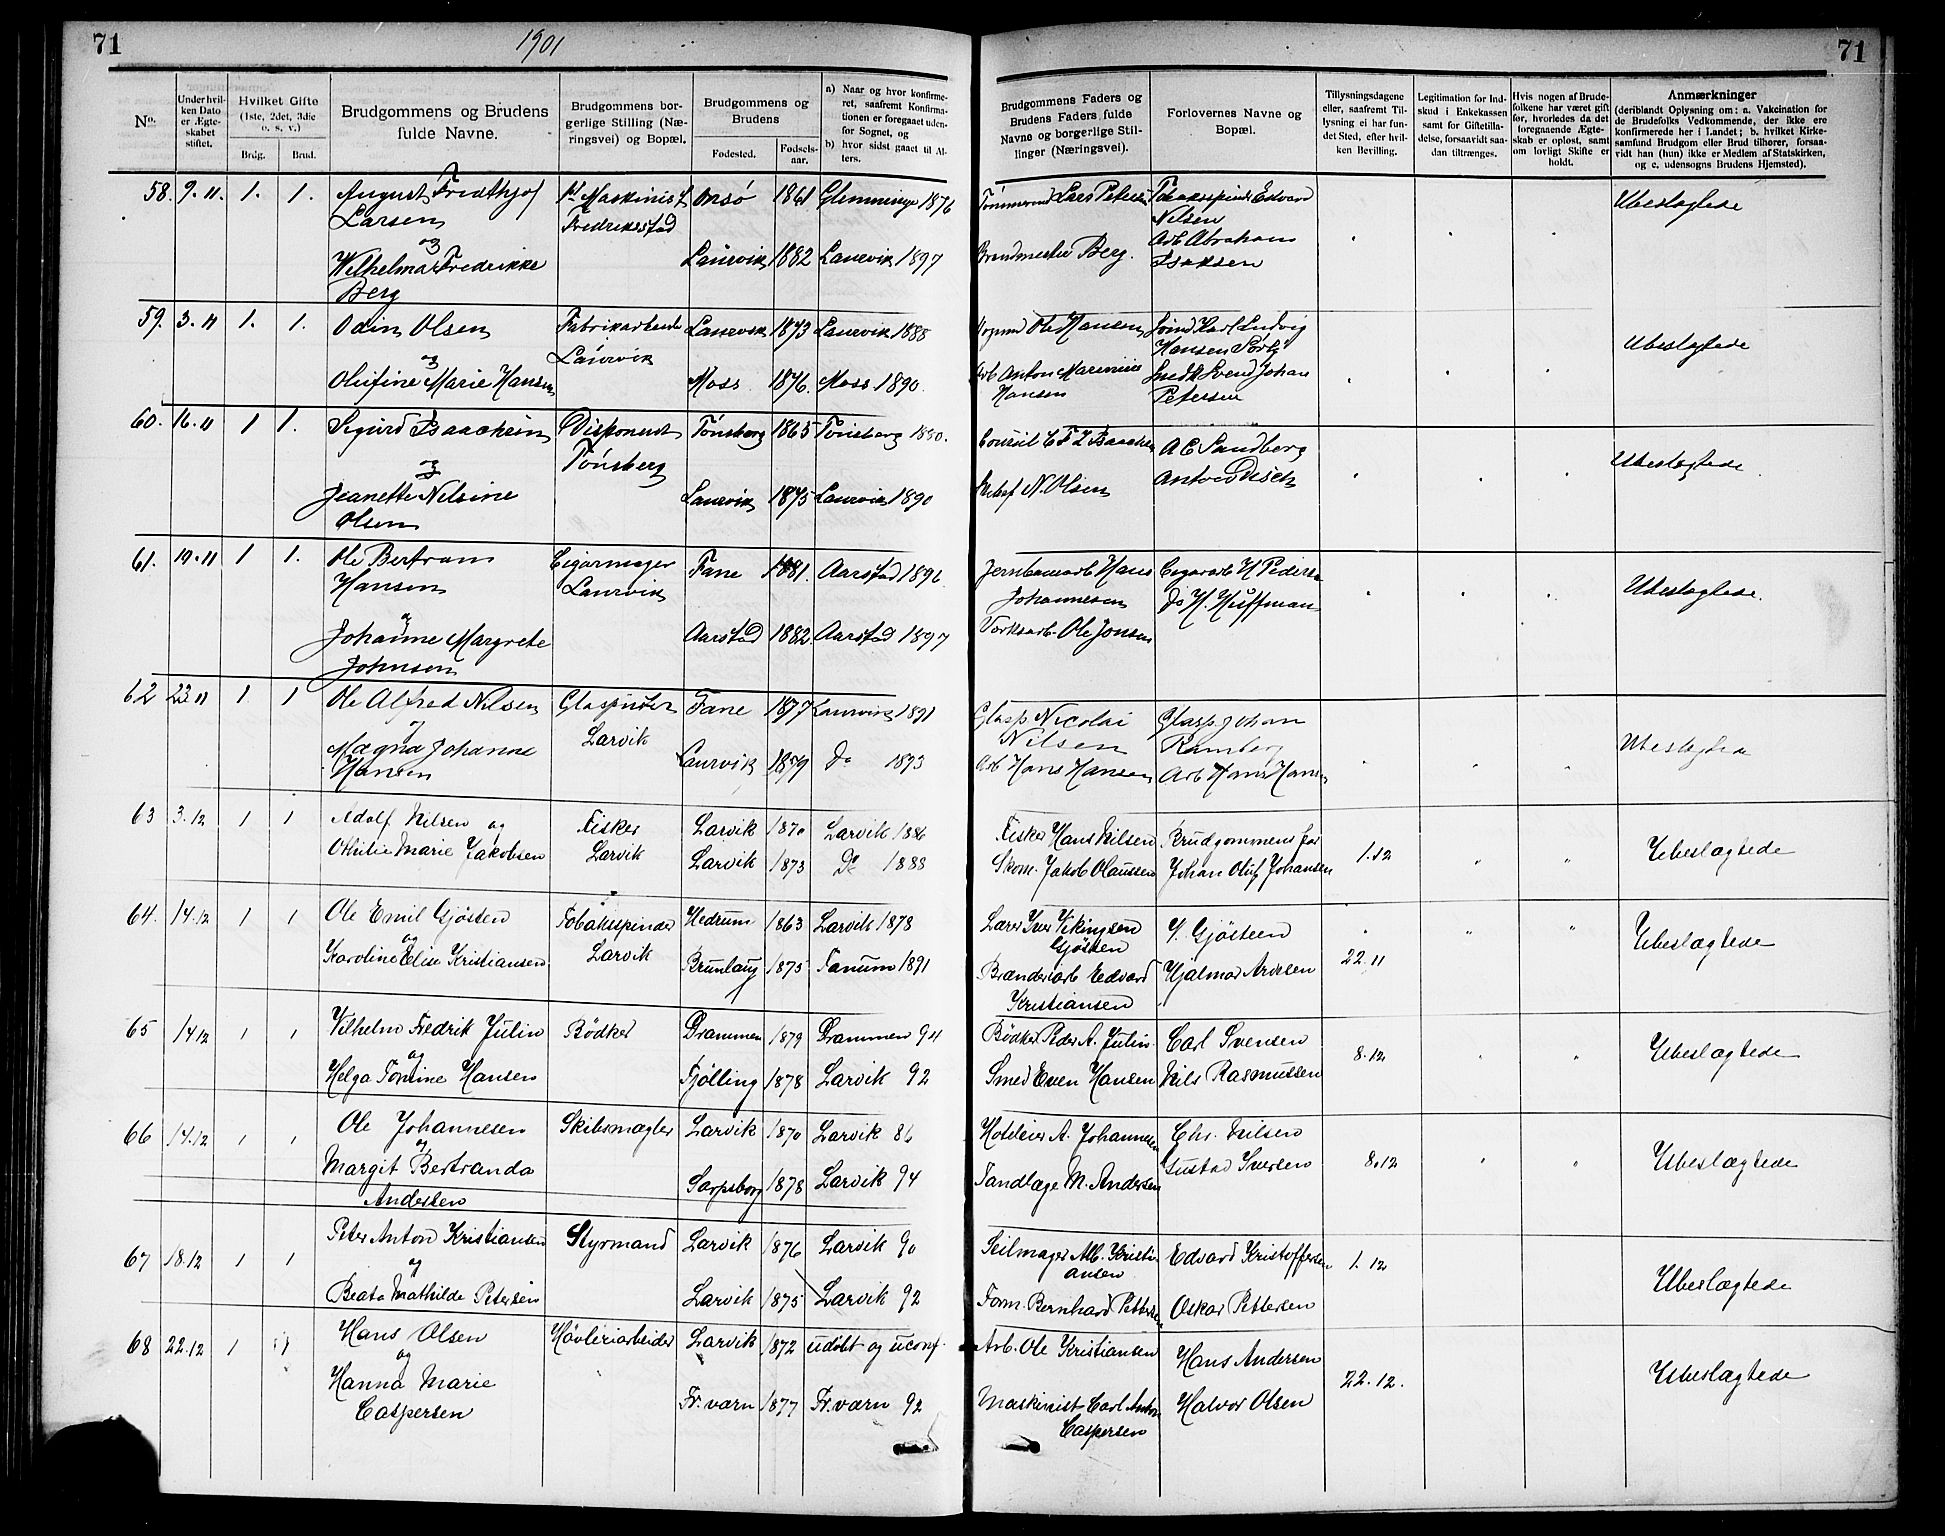 71
1901
71
No.
Under hvilken Dato er Ægteskabet stiftet.
Hvilket Gifte (1ste, 2det, 3die o. s. v.)
Brúg. Brud.
Brudgommens og Brudens fulde Navne.
Brudgommens borgerlige Stilling (Næringsvei) og Bopæl.
Brudgommens og Brudens
Fødested. Fødselsaar.
a) Naar og hvor konfirmeret, saafremt Konfirmationen er foregaaet udenfor Sognet, og
b) hvor sidst gaaet til Alters.
Brudgommens Faders og Brudens Faders fulde Navne og borgerlige Stillinger (Næringsvei).
Forlovernes Navne og Bopæl.
Tillysningsdagene eller, saafremt Tillysning ei har fundet Sted, efter hvilken Bevilling.
Legitimation for Indskud i Enkekassen samt for Giftetilladelse, forsaavidt saadan tiltrænges.
Hvis nogen af Brudefolkene har været gift før, hvorledes da det foregaaende Ægteskab er opløst, samt om lovligt Skifte er holdt.
Anmærkninger
(deriblandt Oplysning om: a. Vakcination for de Brudefolks Vedkommende, der ikke ere konfirmerede her i Landet; b. hvilket Kirkesamfund Brudgom eller Brud tilhører, forsaavidt han (hun) ikke er Medlem af Statskirken, og c. udensogns Brudens Hjemsted).
58. 9.11. 1. 1. August Fridthjof Larsen 1st Maskinist Fredrikstad Onsø 1861 Glemminge 1876 Tømmermd Lars Petersen Tobaksspinder Edvard Nilsen Ubeslægtede
og
Wilhelma Fredrikke Berg Laurvik 1882 Laurvik 1897 Brandmester Berg. Arb Abraham Isaksen
59. 3.11 1. 1. Odin Olsen Fabrikarbeider Laurvik Laurvik 1873 Laurvik 1888 Ole Hansen Karl Ludvig Hansen Ubeslægtede
og
Olufine Marie Hansen Moss 1876. Moss 1890. Arb Anton Marinius Hansen Svend Johan Petersen
60. 16.11 1 1. Sigurd Isaachsen Disponent Tønsberg Tønsberg 1865 Tønsberg 1880. Consul Isaachsen A C Sandberg Ubeslægtede
og
Jeanette Nilsine Olsen Laurvik 1875 Laurvik 1890 N. Olsen
61. 19.11 1 1. Ole Bertram Hansen Cigarmager Laurvik Fane 1881. Aarstad 1896 Jernbanearb Hans Johannesen Cigararb H Pedersen Ubeslægtede.
og
Johanne Margrete Johnsen Aarstad 1882. Aarstad 1897 Værksarb. Ole Jonsen Do H. Huffman
62 23.11 1 1 Ole Alfred Nilsen Glaspuster Larvik Fane 1877 Laurvik 1891 Glasp Nicolai Nilsen Glasp. Johan Ramberg Ubeslægtede
og
Magna Johanne Hansen Laurvik 1879 Do 1893 Arb Hans Hansen Arb Hans Hansen
63 3.12 1 1 Adolf Nilsen og Fisker Larvik Larvik 1870 Larvik 1886 Fisker Hans Nilsen Brudgommens far 1.12 Ubeslægtede
Othilie Marie Jakobsen Larvik 1873 Do 1888 Skom. Jakob Olaussen Johan Oluf Johansen
64. 14.12 1 1 Ole Emil Gjøsteen Tobaksspinder Larvik Hedrum 1863 Larvik 1878 Lærer Iver Vikingsen Gjøsteen Gjøsteen 22.11 Ubeslægtede
og
Karoline Elise Kristiansen Brunlaug 1875 Tanum 1891 Bænderarb Edvard Kristiansen Hjalmar Arvesen
65 14.12 1 1 Vilhelm Fredrik Julin Bødker Drammen 1879 Drammen 94 Bødker Peder A. Julin. Carl Svensen 8.12 Ubeslægtede
og
Helga Tomine Hansen Tjølling 1878 Larvik 92 Smed Even Hansen Nils Rasmussen
66 14.12 1 1 Ole Johannesen Skibsmægler Larvik 1870 Larvik 86 Hoteleier A. Johannesen Chr. Nilsen 8.12 Ubeslægtede
og
Margit Bertranda Andersen Sarpsborg 1878 Larvik 94 Tandlæge M. Andersen Gustav Iversen
67 18.12 1 1 Peter Anton Kristiansen Styrmand Larvik 1876 Larvik 90 Seilmager Alb. Kristiansen Edvard Kristoffersen 1.12 Ubeslægtede
og
Beata Mathilde Petersen Larvik 1875 Larvik 92 Form. Bernhard Pettersen Oskar Pettersen
68 22.12 1 1 Hans Olsen Høvleriarbeider Larvik 1872 udøbt og uconf. Arb. Ole Kristiansen Hans Andersen 22.12. Ubeslægtede
og
Hanna Marie Caspersen Fr.værn 1877 Fr.værn 92 Maskinist Carl Anton Caspersen Halvor Olsen